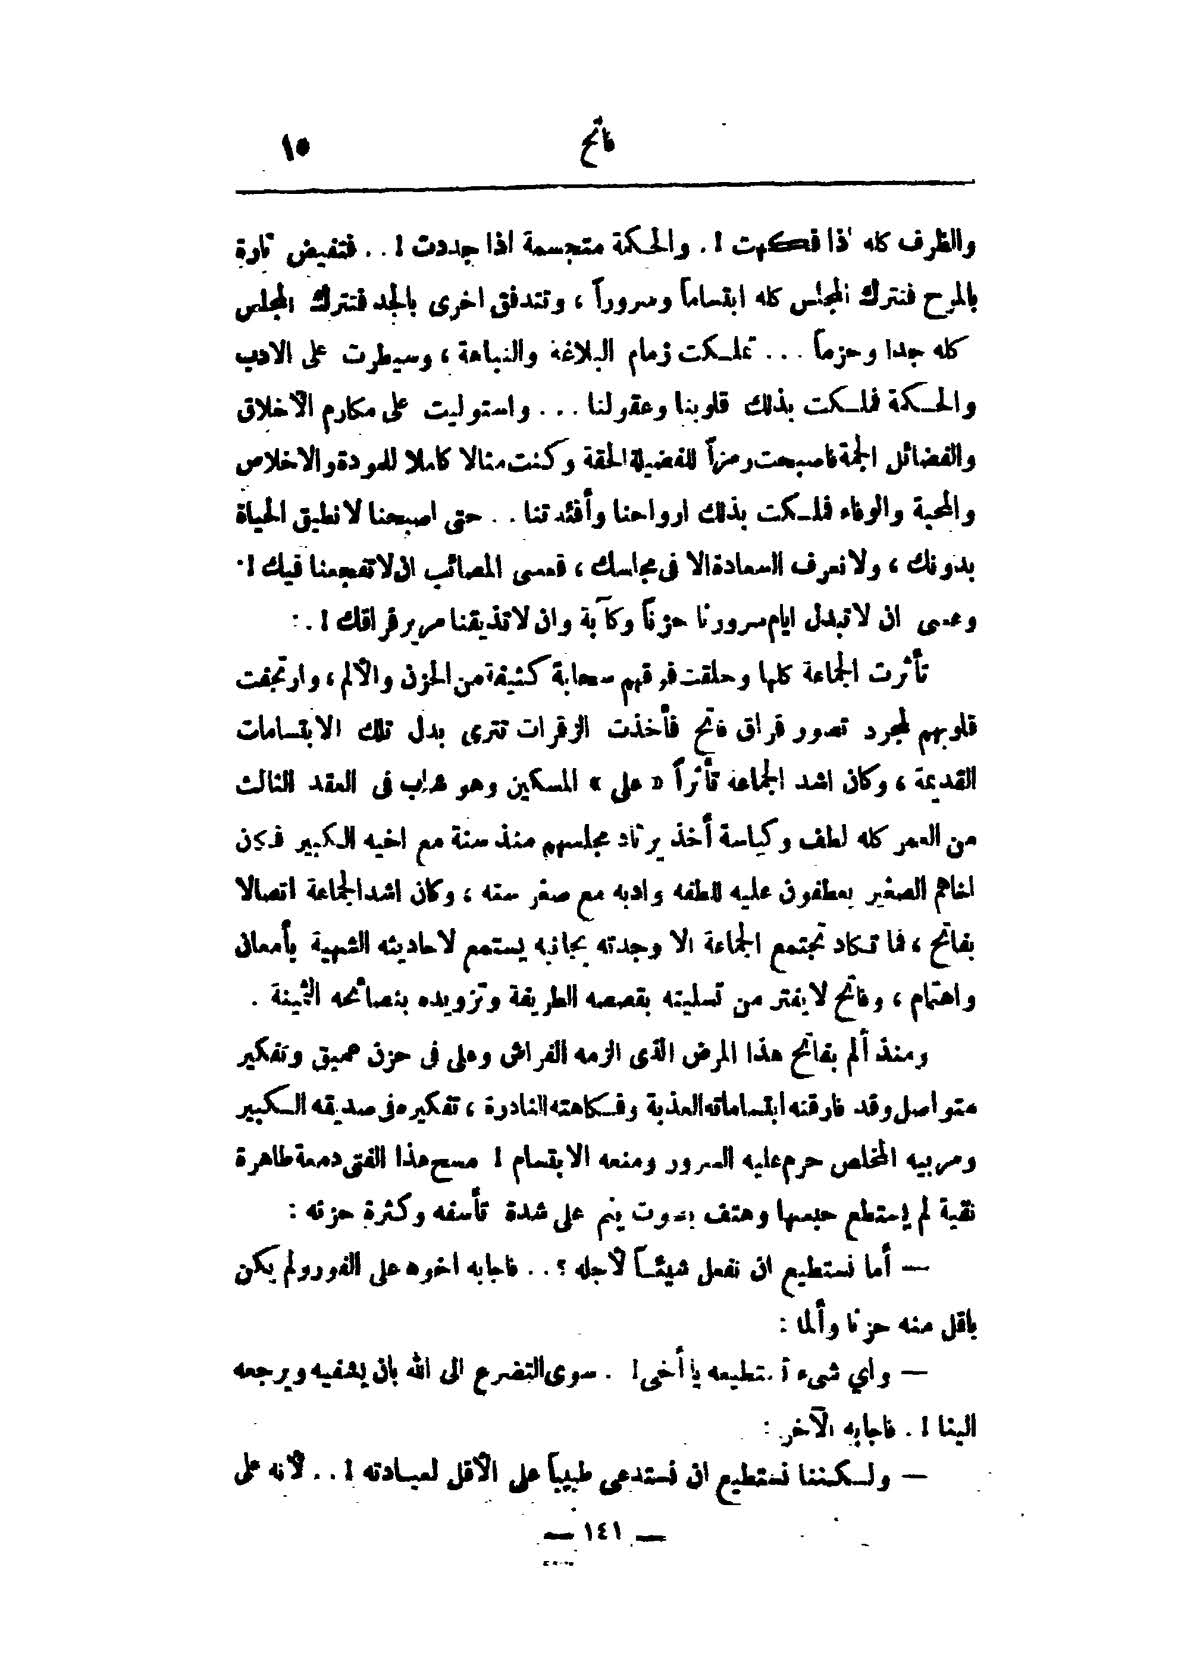 فاتح ١٥
والظرف كله اذا فكهت !. والحكمة متجسمة اذا جددت ! . . فتفيض تارة
بالمرح فتترك المجلس كله ابتساماً وسروراً ، وتتدفق اخرى بالجد فتترك المجلس
كله جدا وحزماً . . . تملكت زمام البلاغة والنباهة ، وسيطرت على الادب
والحكمة فملكت بذلك قلوبنا وعقولنا . . . واستوليت على مكارم الأخلاق
والفضائل الجمة فاصبحت رمزاً للفضيلة الحقة وكنت مثالا كاملا للمودة والاخلاص
والمحبة والوفاء فملكت بذلك ارواحنا وأفئدتنا . . حتى اصبحنا لا نطيق الحياة
بدونك ، ولا نعرف السعادة الا في مجاسك ، فعسى المصائب ان لا تفجعنا فيك !.
وعسى ان لا تبدل ايام سرورنا حزناً وكآبة وان لا تذيقنا مرير فراقك ! . :
تأثرت الجماعة كلها وحلقت فوقهم سحابة كثيفة من الحزن والألم ، وارتجفت
قلوبهم لمجرد تصور فراق فاتح فأخذت الزفرات تترى بدل تلك الابتسامات
القديمة ، وكان اشد الجماعة تأثراً « علي » المسكين وهو شاب في العقد الثالث
من العمر كله لطف وكياسة أخذ يرتاد مجلسهم منذ سنة مع اخيه الكبير فكان
اخاهم الصغير يعطفون عليه للطفه وادبه مع صغر سنه ، وكان اشد الجماعة اتصالا
بفاتح ، فما تكاد تجتمع الجماعة الا وجدته بجانبه يستمع لاحاديثه الشهية بأمعان
واهتمام ، وفاتح لا يفتر من تسليته بقصصه الطريفة وتزويده بنصائحه الثمينة .
ومنذ ألم بفاتح هذا المرض الذي الزمه الفراش وعلي في حزن عميق وتفكير
متواصل وقد فارقته ابتساماته العذبة وفكاهته النادرة ، تفكيره في صديقه الكبير
ومربيه المخلص حرم عليه السرور ومنعه الابتسام ! مسح هذا الفتى دمعة طاهرة
نقية لم يستطع حبسها وهتف بصوت ينم على شدة تأسفه وكثرة حزنه :
— أما نستطيع ان نفعل شيئاً لأجله ؟ . . فاجابه اخوه على الفور ولم يكن
باقل منه حزنا وألما :
— واي شيء نستطيعه يا أخي ! . سوى التضرع الى الله بان يشفيه ويرجعه
الينا ! . فاجابه الآخر :
— ولكننا نستطيع ان نستدعي طبيباً على الأقل لعيادته ! . . لأنه على
— ١٤١ —